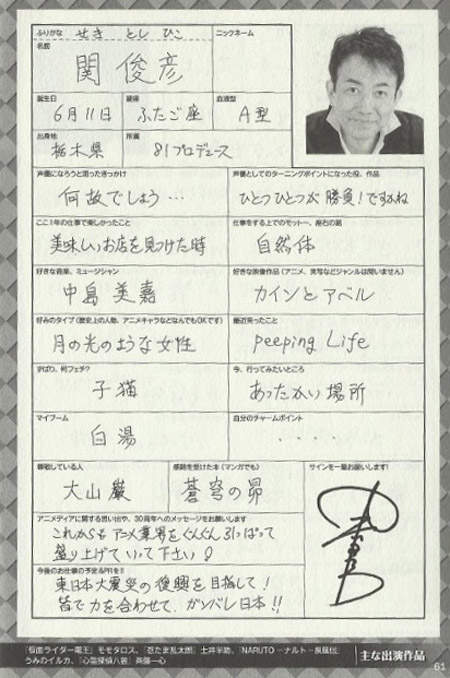 ふりがな せき とし ひこ ニックネーム
名前
関 俊彦
誕生日 星座 血液型
6月11日 ふたご座 A型
出身地 所属
栃木県 81プロデュース
声優になろうと思ったきっかけ 声優としてのターニングポイントになった役、作品
何故でしょう… ひとつひとつが勝負!ですかね
ここ1年の仕事で楽しかったこと 仕事をする上でのモットー、座右の銘
美味しいお店を見つけた時 自然体
好きな音楽、ミュージシャン 好きな映像作品(アニメ、実写などジャンルは問いません)
中島美嘉 カインとアベル
好みのタイプ(歴史上の人物、アニメキャラなどなんでもOKです) 最近笑ったこと
月の光のような女性 peeping Life
ずばり、何フェチ? 今、行ってみたいところ
子猫 あったかい場所
マイブーム 自分のチャームポイント
白湯 ・・・・
尊敬している人 感銘を受けた本(マンガでも) サインを一筆お願いします!
大山巌 蒼穹の昴
アニメディアに関する思い出や、30周年へのメッセージをお願いします
これからもアニメ業界をぐんぐん引っぱって
盛り上げていって下さい♪
今後のお仕事の予定&PRを!!
東日本大震災の復興を目指して!
皆で力を合わせて、ガンバレ日本!!
『仮面ライダー電王』モモタロス、『忍たま乱太郎』土井半助、『NARUTO -ナルト- 疾風伝』
うみのイルカ、『心霊探偵八雲』斉藤一心
主な出演作品
61